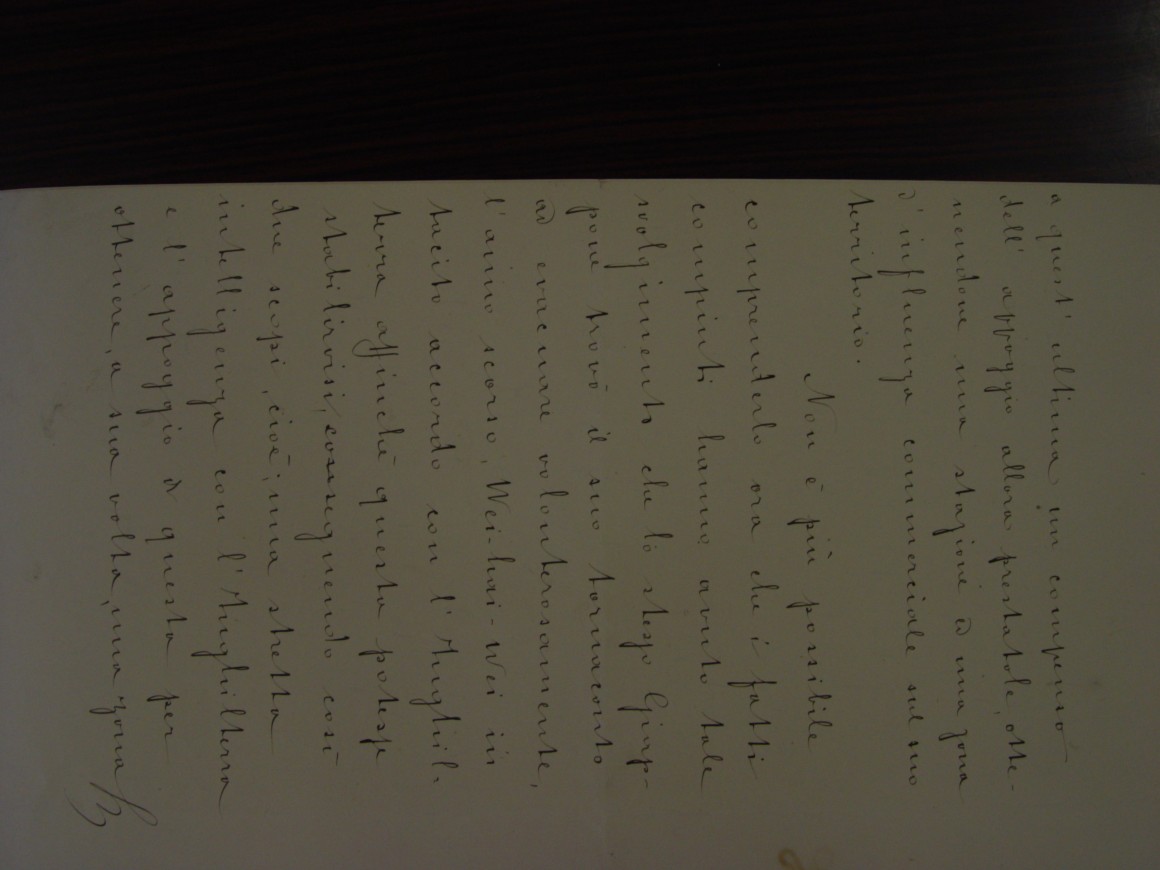 a quest'ultima in compenso
dell'appoggio allora prestatole, otte-
nendone una stazione ed una zona
d'influenza commerciale sul suo
territorio.
Non è più possibile
comprenderlo ora che i fatti
compiuti hanno avuto tale
svolgimento che lo stesso Giap-
pone trovò il suo tornaconto
ad evacuare volonterosamente,
l'anno scorso, Wei-hai-Wei in
tacito accordo con l'Inghil-
terra affinchè questa potesse
stabilirvisi, conseguendo così
due scopi, cioè, una stretta
intelligenza con l'Inghilterra
e l'appoggio di questa per
ottenere, a sua volta, una zona